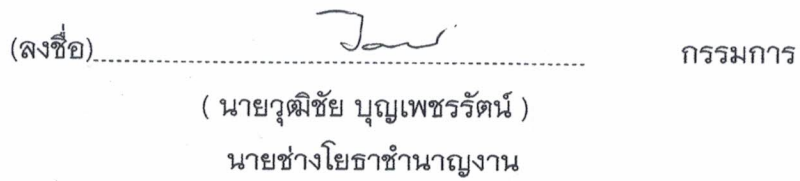 (ลงชื่อ)........................................................................ กรรมการ
( นายวุฒิชัย บุญเพชรรัตน์ )
นายช่างโยธาชำนาญงาน